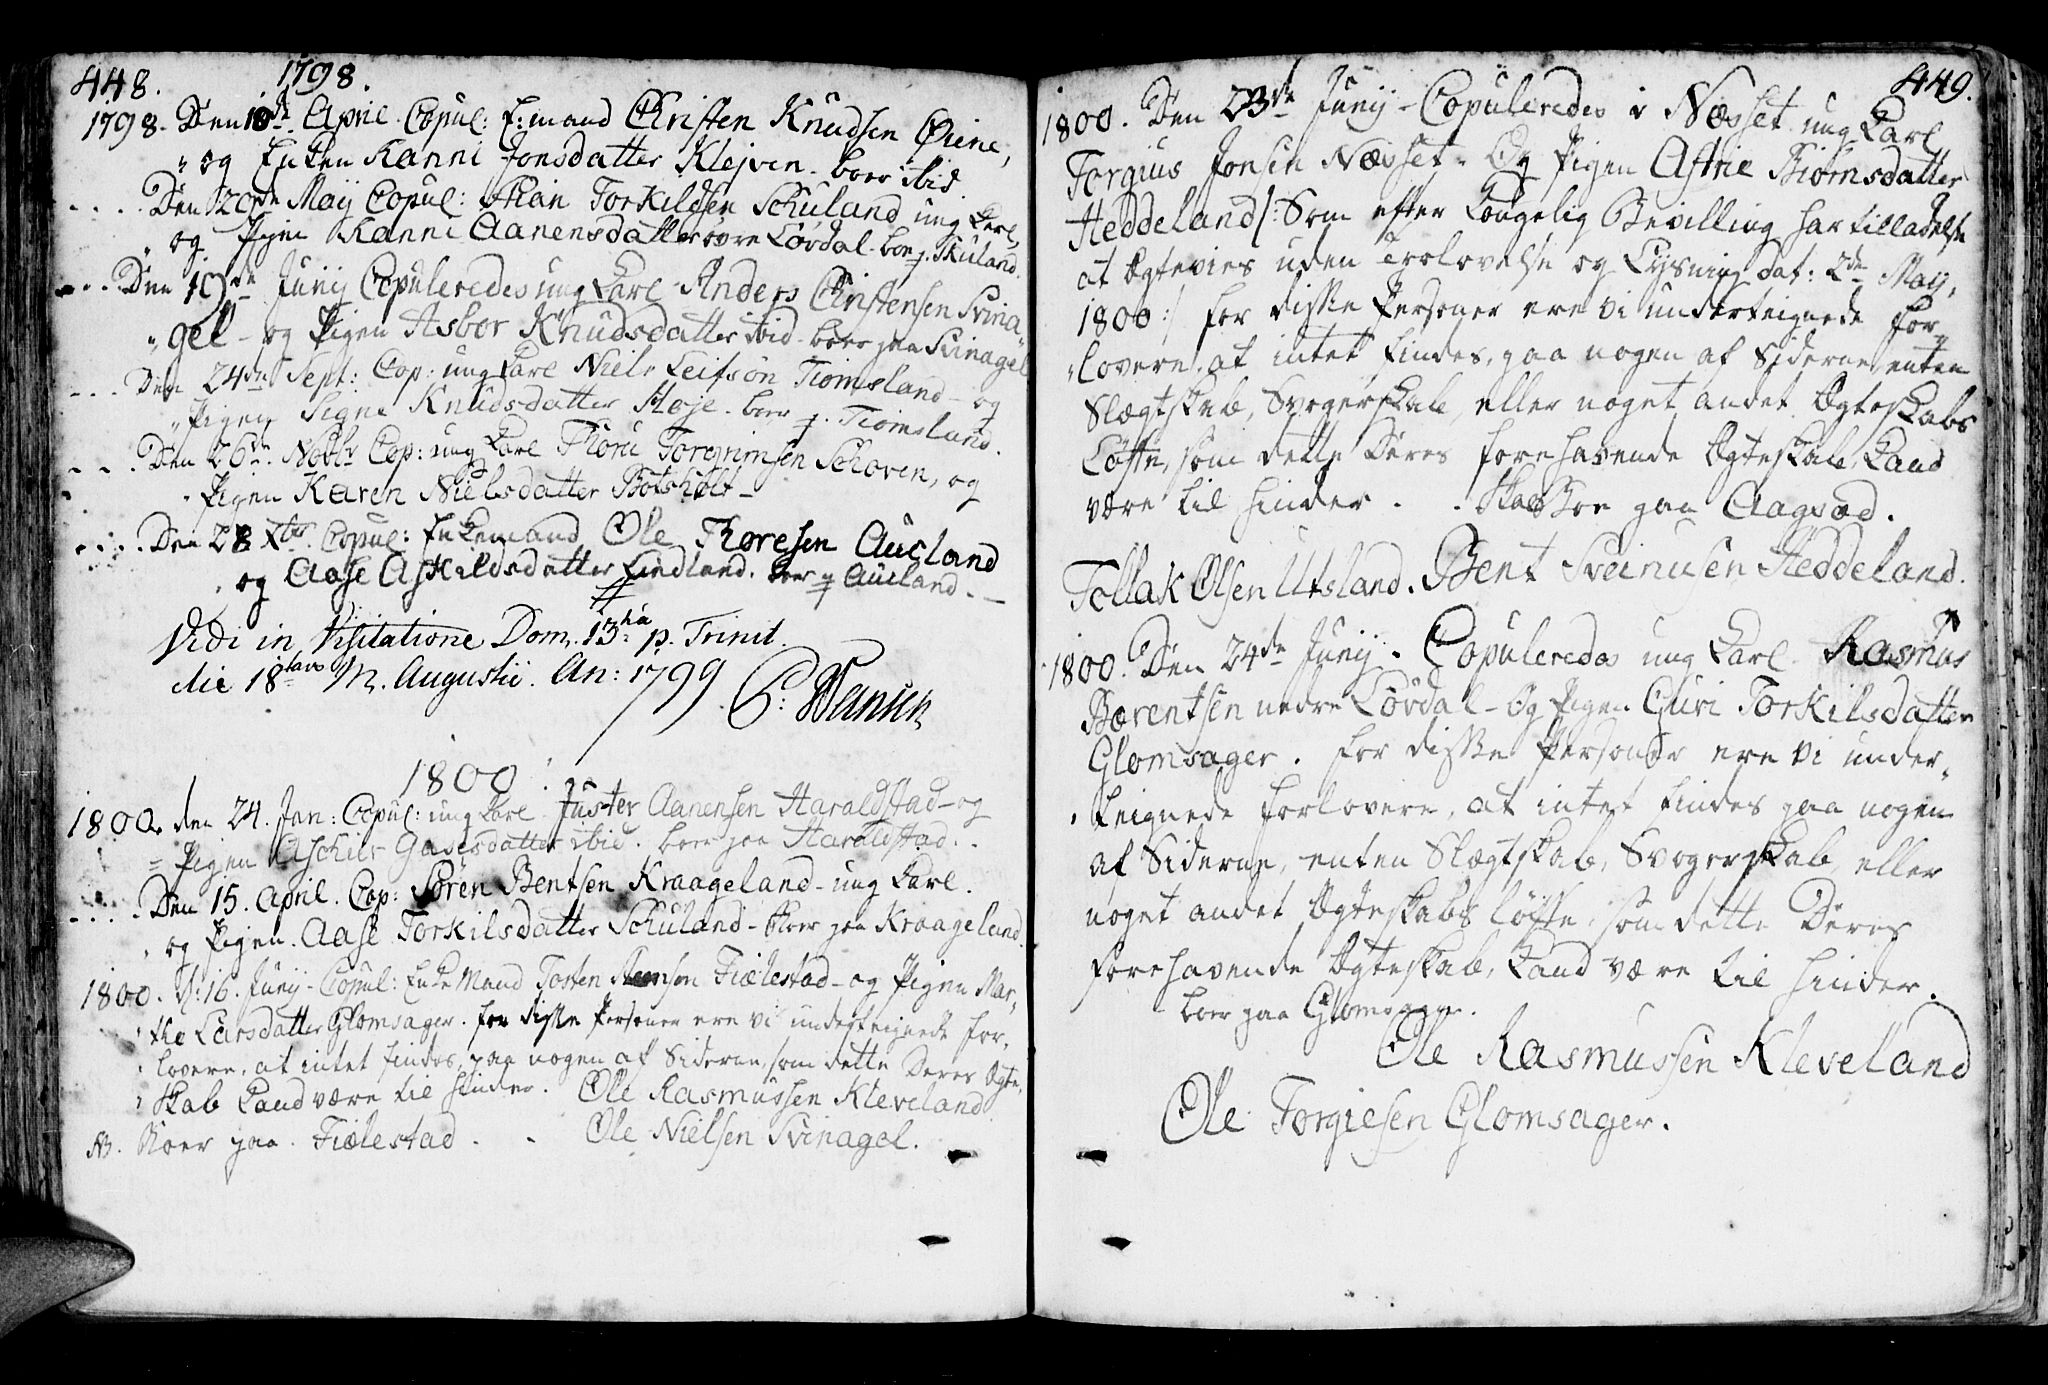 448. 1798.
1798. Den 10de April. Copul: E:mand Christen Knudsen Øine,
og Enken Ranni Jonsdatter Klejven. boer ibid
Den 20de Maij Copul: Torkildsen Schuland ung Karl,
og Pigen Ranni Aanensdatter øvre Løvdal. boe p. Skuland.
Den 19de Junij Copuleredes ung Karl Anders Christensen Svina„
„gel – og Pigen Asbor Knudsdatter ibid – boer paa Svinagel
Den 24de Sept: Cop: ung Karl Niels Leifsøn Tiomsland – og
Pigen Signe Knudsdatter Høje. boer p. Tiomsland.
Den 26de Novbr Cop: ung Karl Thoru Torgrimsen Schoven, og
Pigen Karen Nielsdatter Botsholt –
Den 28 Xbr. Copul: Enkemand Ole Thoresen Aucland
og Aase Askildsdatter Lindland. boer p Aucland. –
Vidi in Visitatione Dom. 13tia p. Trinit.
die 18tavo M. Augustii. An: 1799. P: Hansen
1800.
1800. den 24. Jan: Copul: ung Karl Juster Aanensen Haraldstad – og
Pigen ibid. boer paa Haraldstad.
Den 15. April. Cop: Søren Bentsen Kraageland – ung Karl.
og Pigen. Aase Torkilsdatter Schuland – Boer paa Kraageland.
1800. d: 16. Junij – Copul: Enke Mand Tosten Fiælestad – og Pigen Mar„
the Larsdatter Glomsager. for disse Personer ere vi undertegnede for„
lovere, at intet findes, paa nogen af Siderne, som dette Deres Ægte„
skab kand være til hinder. Ole Rasmussen Kleveland
NB. Boer paa Fiælestad. – Ole Nielsen Svinagel.
449.
1800. Den 23de Junij – Copuleredes i Næsset ung Karl
Torgius Jonsen Næsset – Og Pigen Astrie Biørnsdatter
Heddeland /: Som efter Kongelig Bevilling har tilladelse
at Ægtevies uden Trolovelse og Lysning dat: 2de Maij,
1800 :/ for disse Personer ere vi underteignede for„
„lovere, at intet findes, paa nogen af Siderne, enten
Slægtskab, Svogerskab, eller noget andet Ægteskabs
Løfte, som dette Deres forehavende Ægteskab, kand
være til hinder. Skal Boe paa Aagsad.
Tollak Olsen Utsland. Bent Sveinusen Heddeland.
1800. Den 24de Junij. Copuleredes ung Karl. Rasmus
Bærentsen nedre Løvdal – Og Pigen Guri Torkilsdatter
Glomsager. for disse Personer ere vi under„
„teignede forlovere, at intet findes paa nogen
af Siderne, enten Slægtskab, Svogerskab, eller
noget andet Ægteskabs løfte, som dette Deres
forehavende Ægteskab, kand være til hinder.
boer paa Glomsager.
Ole Rasmussen Kleveland
Ole Torgiesen Glomsager.